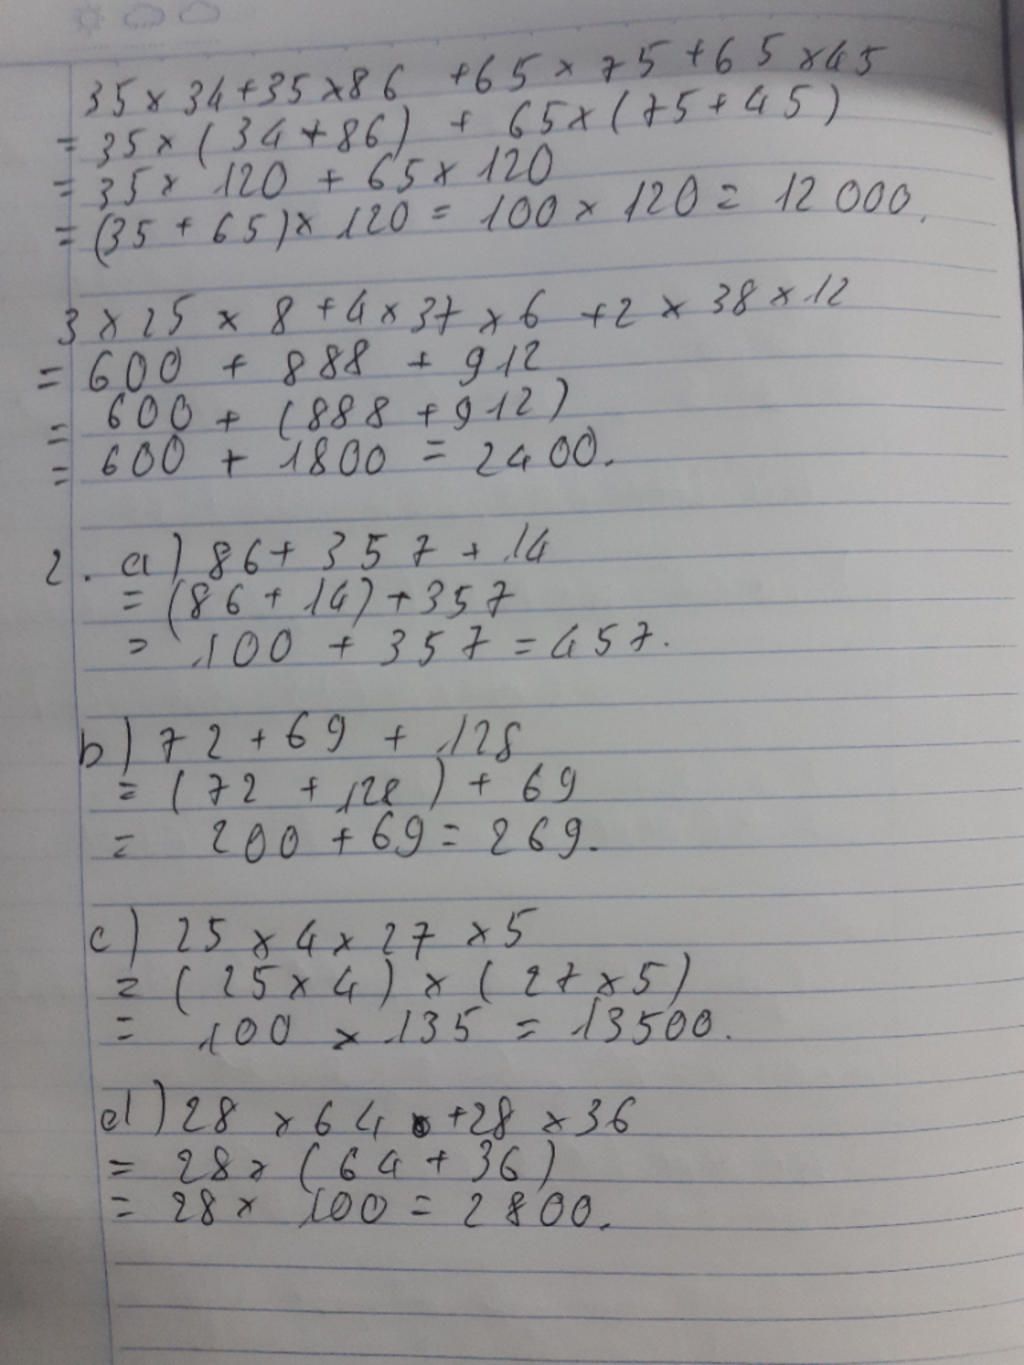 35 × 34 + 35 × 86 + 65 × 75 + 65 × 45
= 35 × ( 34 + 86 ) + 65 × ( 75 + 45 )
= 35 × 120 + 65 × 120
= (35 + 65) × 120 = 100 × 120 = 12 000.
3 × 25 × 8 + 4 × 37 × 6 + 2 × 38 × 12
= 600 + 888 + 912
= 600 + (888 + 912)
= 600 + 1800 = 2400.
2. a) 86 + 357 + 14
= (86 + 14) + 357
= 100 + 357 = 457.
b) 72 + 69 + 128
= (72 + 128) + 69
= 200 + 69 = 269.
c) 25 × 4 × 27 × 5
= (25 × 4) × (27 × 5)
= 100 × 135 = 13500.
d) 28 × 64 + 28 × 36
= 28 × (64 + 36)
= 28 × 100 = 2800.